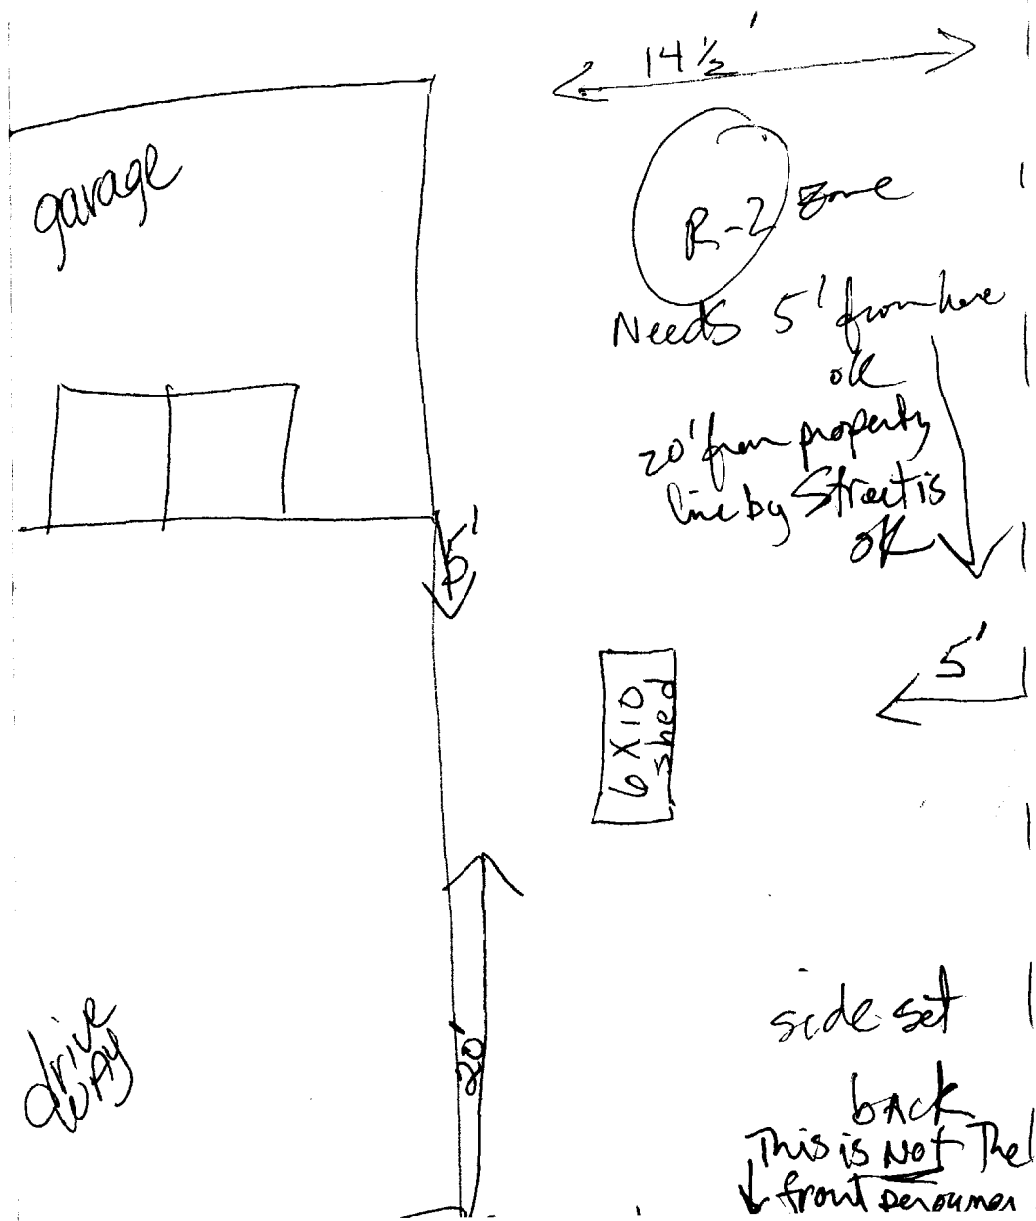 14 ½'
garage
R-2 zone
Needs 5' from here
ok
20' from property
line by Street is
OK
5'
5'
6 X 10
shed
20'
drive
WAY
side set
back
This is Not The
front